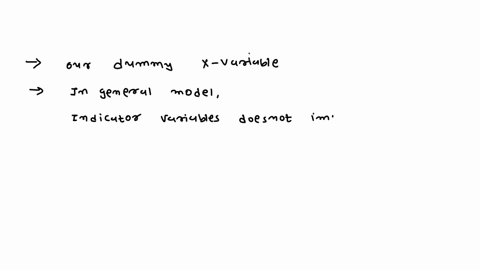 → our dummy x-variable
→ In general model,
Indicator variables doesnot im